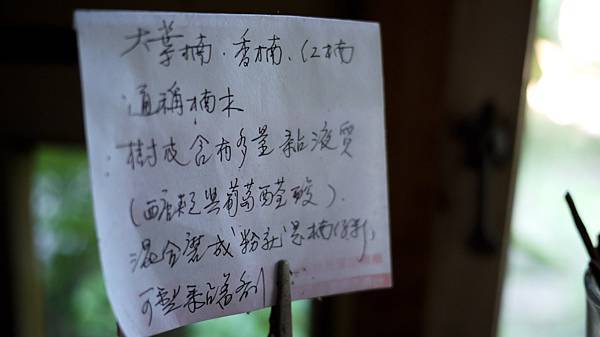 大葉楠.香楠、紅楠
通稱楠木
樹皮含有多量黏液質
(醣類與葡萄醛酸).
混合磨成粉就是楠仔粉,
可製黏著劑